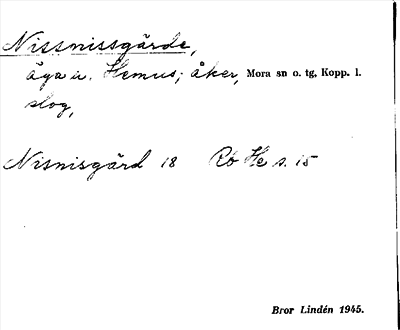 Nissnissgärde,
äga u. Hemus; åker, Mora sn o. tg, Kopp. l.
slog,
Nisnisgärd 18 Rö He s. 15
Bror Lindén 1945.